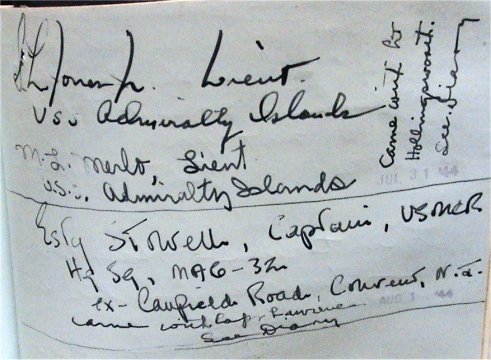 Jones Jr. Lieut.
USS Admiralty Islands
M. L. Merlo, Lieut.
U.S.S. Admiralty Islands
Came with Lt
Hollingsworth.
See Diary
JUL 31 '44
Stowell, Captain, USMCR
Hq Sq, MAG-32
ex- Canfield Road, Convent, N.J.
came with Capt. Lawrence
See Diary
AUG 1 '44